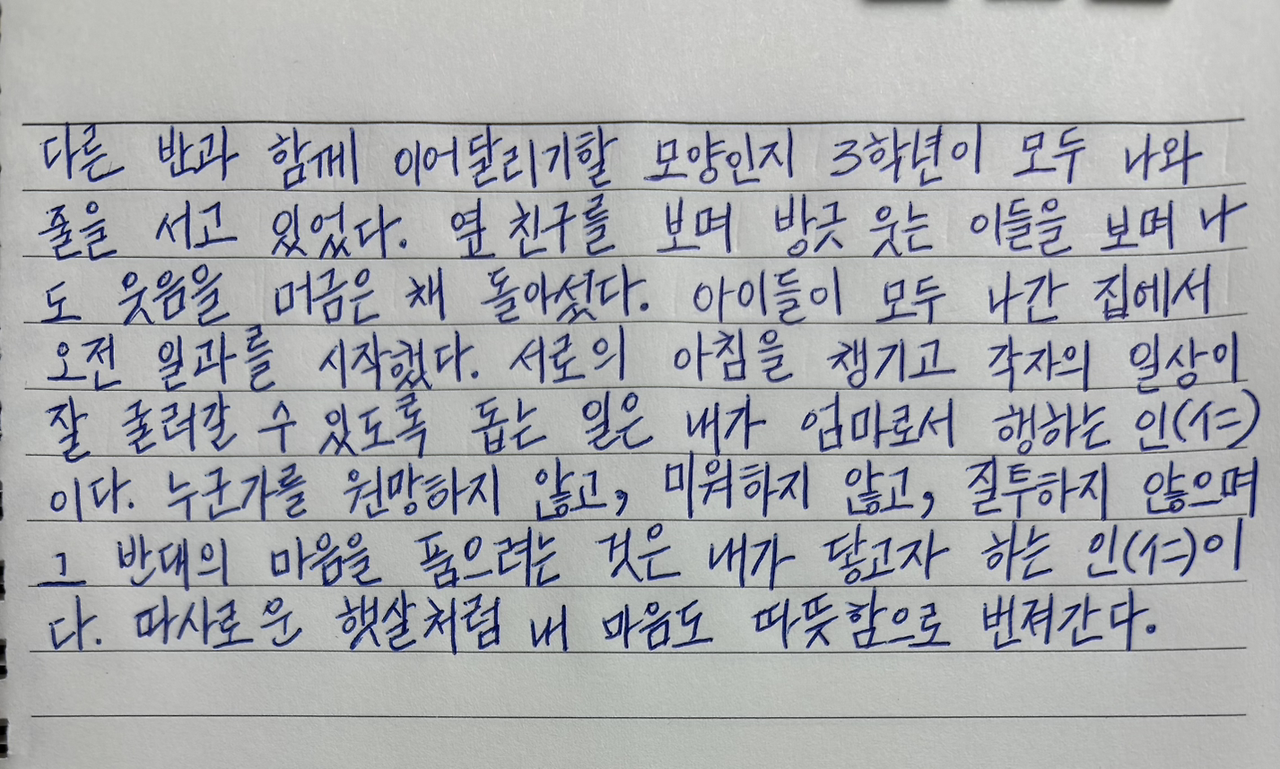 다른 반과 함께 이어달리기할 모양인지 3학년이 모두 나와
줄을 서고 있었다. 옆 친구를 보며 방긋 웃는 이들을 보며 나
도 웃음을 머금은 채 돌아섰다. 아이들이 모두 나간 집에서
오전 일과를 시작했다. 서로의 아침을 챙기고 각자의 일상이
잘 굴러갈 수 있도록 돕는 일은 내가 엄마로서 행하는 인(仁)
이다. 누군가를 원망하지 않고, 미워하지 않고, 질투하지 않으며
그 반대의 마음을 품으려는 것은 내가 닿고자 하는 인(仁)이
다. 따사로운 햇살처럼 내 마음도 따뜻함으로 번져간다.